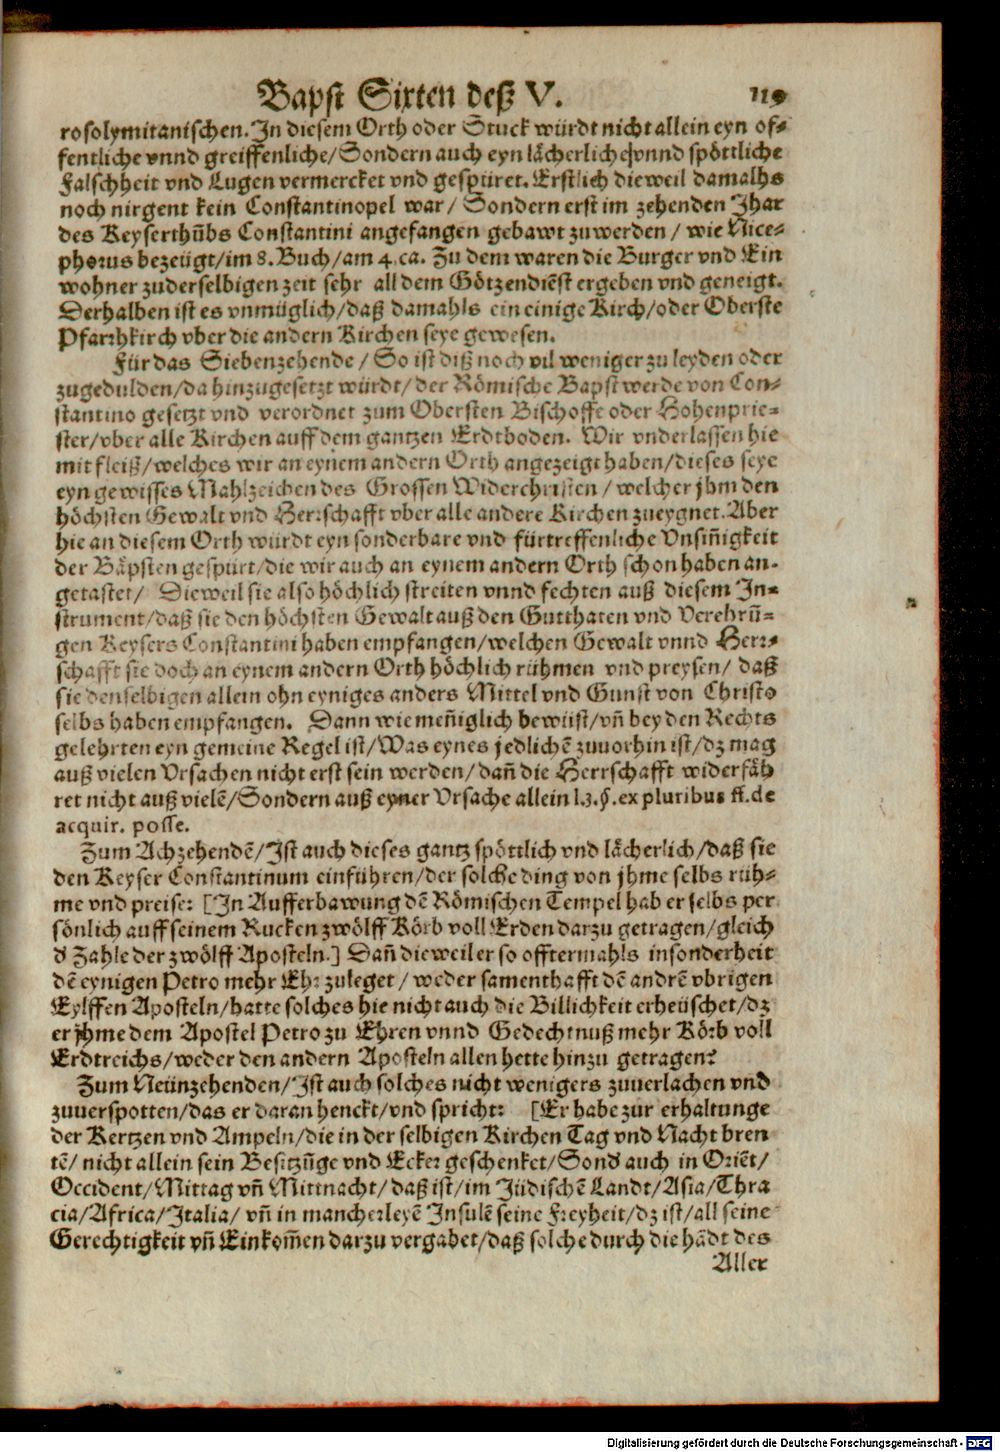 Bapst Sixten deß V. 119
rosolymitanischen. In diesem Orth oder Stuck würdt nicht allein eyn of-
fentliche vnnd greiffenliche/Sondern auch eyn lächerliche vnnd spöttliche
Falschheit vnd Lugen vermercket vnd gespüret. Erstlich dieweil damalhs
noch nirgent kein Constantinopel war/ Sondern erst im zehenden Jhar
des Keyserthūbs Constantini angefangen gebawt zu werden / wie Nice-
phorus bezeügt/im 8. Buch/am 4. ca. Zu dem waren die Burger vnd Ein
wohner zu derselbigen zeit sehr all dem Götzendiēst ergeben vnd geneigt.
Derhalben ist es vnmüglich/daß damahls ein einige Kirch/oder Oberste
Pfarrhkirch vber die andern Kirchen seye gewesen.
Für das Siebenzehende / So ist diß noch vil weniger zu leyden oder
zugedulden/da hinzugesetzt würdt/der Römische Bapst werde von Con-
stantino gesetzt vnd verordnet zum Obersten Bischoffe oder Hohenprie-
ster/vber alle Kirchen auff dem gantzen Erdtboden. Wir vnderlassen hie
mit fleiß/welches wir an eynem andern Orth angezeigt haben/dieses seye
eyn gewisses Mahlzeichen des Grossen Widerchristen / welcher jhm den
höchsten Gewalt vnd Herrschafft vber alle andere Kirchen zueygnet. Aber
hie an diesem Orth würdt eyn sonderbare vnd fürtreffenliche Vnsiñigkeit
der Bäpsten gespürt/die wir auch an eynem andern Orth schon haben an-
getastet/ Dieweil sie also höchlich streiten vnnd fechten auß diesem In-
strument/daß sie den höchsten Gewalt auß den Gutthaten vnd Verehrū-
gen Keysers Constantini haben empfangen/welchen Gewalt vnnd Herr-
schafft sie doch an eynem andern Orth höchlich rühmen vnd preysen/ daß
sie denselbigen allein ohn eyniges anders Mittel vnd Gunst von Christo
selbs haben empfangen. Dann wie meñiglich bewüst/vñ bey den Rechts
gelehrten eyn gemeine Regel ist/Was eynes jedlichē zuvorhin ist/dz mag
auß vielen Vrsachen nicht erst sein werden/dañ die Herrschafft widerfäh
ret nicht auß vielē/Sondern auß eyner Vrsache allein l.3.§.ex pluribus ff.de
acquir. posse.
Zum Achzehendē/Ist auch dieses gantz spöttlich vnd lächerlich/daß sie
den Keyser Constantinum einführen/der solche ding von jhme selbs rüh-
me vnd preise: [In Aufferbawung dē Römischen Tempel hab er selbs per
sönlich auff seinem Rucken zwölff Körb voll Erden darzu getragen/gleich
d Zahle der zwölff Aposteln.] Dañ dieweil er so offtermahls insonderheit
dē eynigen Petro mehr Ehr zuleget / weder samenthafft dē andrē vbrigen
Eylffen Aposteln/hatte solches hie nicht auch die Billichkeit erheüschet/dz
er jhme dem Apostel Petro zu Ehren vnnd Gedechtnuß mehr Körb voll
Erdtreichs/weder den andern Aposteln allen hette hinzu getragen?
Zum Neünzehenden/Ist auch solches nicht wenigers zuverlachen vnd
zuverspotten/das er daran henckt/vnd spricht: [Er habe zur erhaltunge
der Kertzen vnd Ampeln/die in der selbigen Kirchen Tag vnd Nacht bren
tē/ nicht allein sein Besitzūge vnd Ecker geschenket/Sond auch in Oriēt/
Occident/Mittag vñ Mittnacht/daß ist/im Jüdischē Landt/Asia/Thra
cia/Africa/Italia/ vñ in mancherleyē Insulē seine Freyheit/dz ist/all seine
Gerechtigkeit vñ Einkom̃en darzu vergabet/daß solche durch die hādt des
Aller
Digitalisierung gefördert durch die Deutsche Forschungsgemeinschaft - DFG